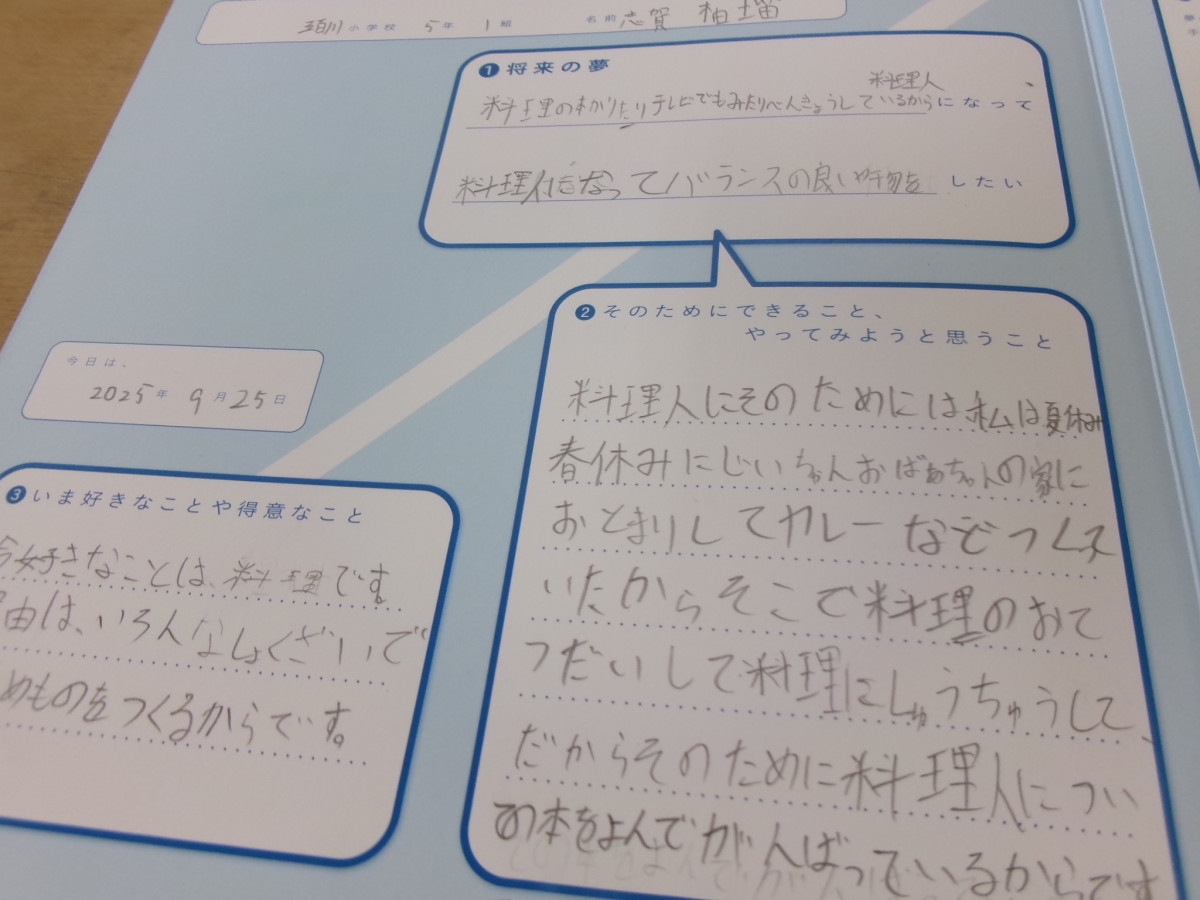 小学校 5年 1組 名前 志賀
❶将来の夢
料理人、
料理の本かりたりテレビでもみたりべんきょうしているからになって
料理人になってバランスの良い したい
❷そのためにできること、
やってみようと思うこと
料理人にそのためには私は夏休み
春休みにじいちゃんおばあちゃんの家に
おとまりしてカレーなど
いたからそこで料理のおて
つだいして料理にしゅうちゅうして、
だからそのために料理人につい
ての本をよんでがんばっているからです
今日は、
2025年 9月25日
❸いま好きなことや得意なこと
今好きなことは、料理です。
由は、いろんなしょくざいで
めものをつくるからです。